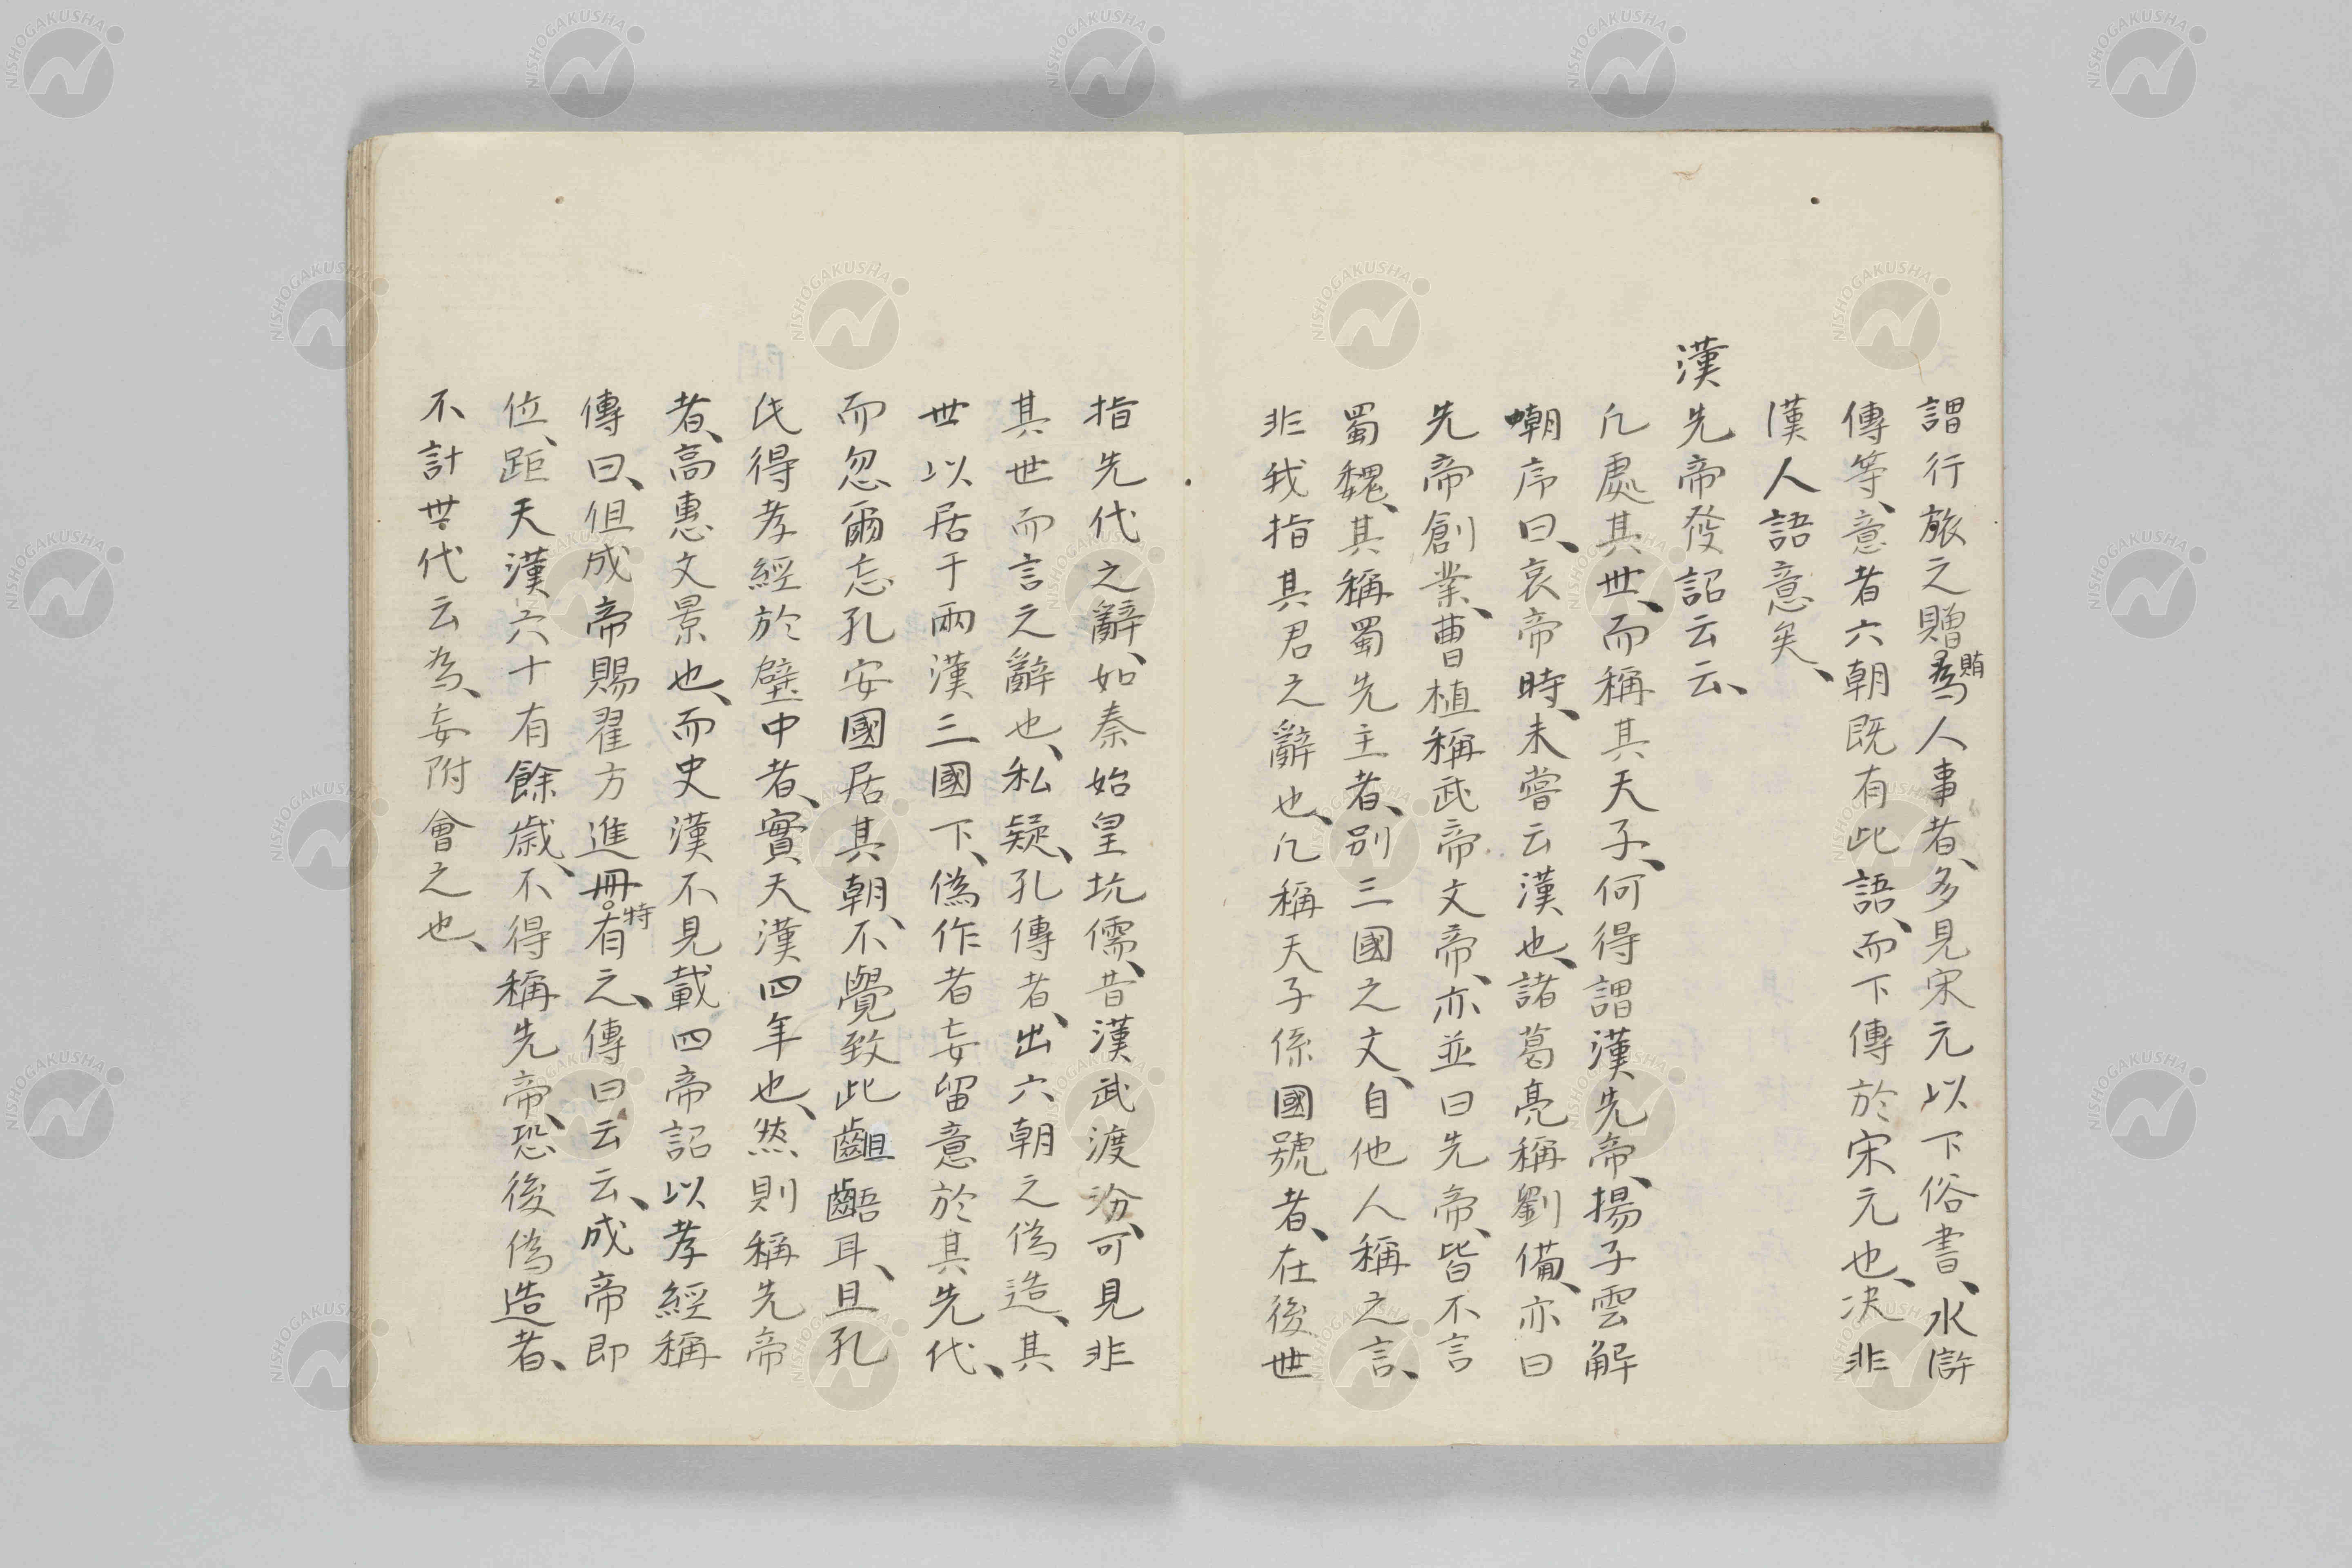 謂行旅之贈賄為人事者、多見宋元以下俗書、水滸
傳等、意者六朝既有此語、而下傳於宋元也、决非
漢人語意矣、
漢先帝發詔云云、
凢處其世、而稱其天子、何得謂漢先帝、揚子雲解
嘲序曰、哀帝時、未嘗云漢也、諸葛亮稱劉備、亦曰
先帝創業、曹植稱武帝文帝、亦並曰先帝、皆不言
蜀魏、其稱蜀先主者、別三國之文、自他人稱之言、
非我指其君之辭也、凢稱天子係國號者、在後世
指先代之辭、如秦始皇坑儒、昔漢武渡汾、可見非
其世而言之辭也、私疑、孔傳者、出六朝之偽造、其
世以居于兩漢三國下、偽作者妄留意於其先代、
而忽爾忘孔安國居其朝、不覺致此齟齬耳、且孔
氏得孝經於壁中者、實天漢四年也、然則稱先帝
者、高惠文景也、而史漢不見載四帝詔以孝經稱
傳曰、但成帝賜翟方進冊特有之、傳曰云云、成帝即
位、距天漢六十有餘歲、不得稱先帝、恐後偽造者、
不計世代云為、妄附會之也、
NISHOGAKUSHA